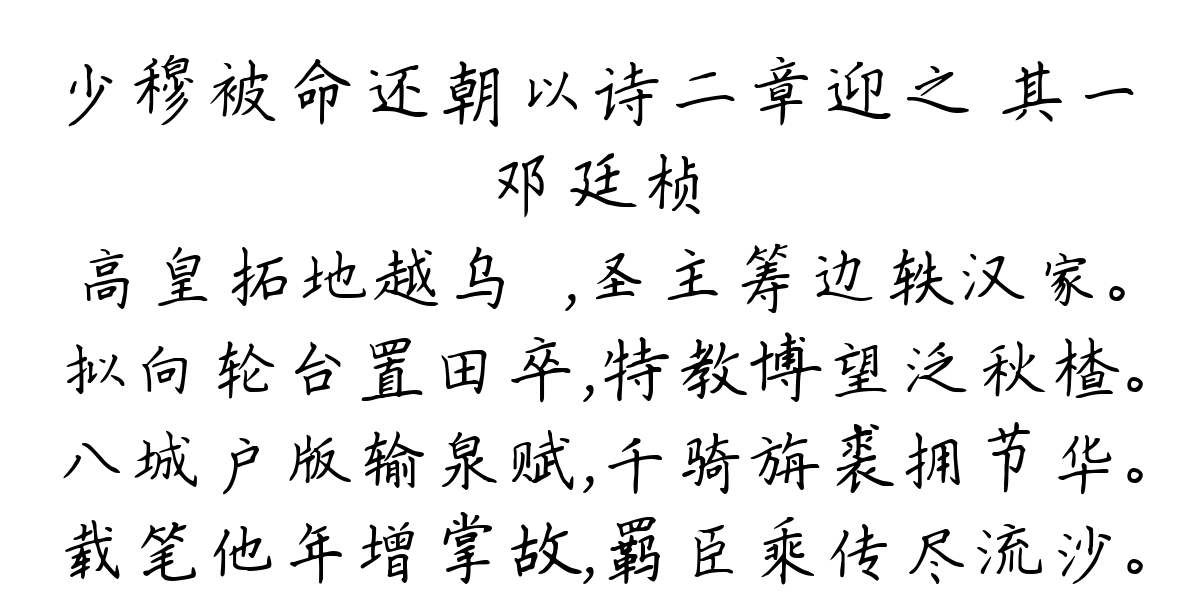 少穆被命还朝以诗二章迎之 其一
邓廷桢
高皇拓地越乌 ,圣主筹边轶汉家。
拟向轮台置田卒,特教博望泛秋楂。
八城户版输泉赋,千骑旃裘拥节华。
载笔他年增掌故,羁臣乘传尽流沙。